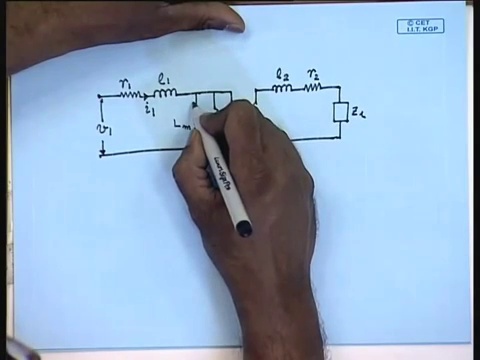 © CET
I.I.T. KGP
r₁ l₁ l₂ r₂
i₁
v₁ Lm Z_L